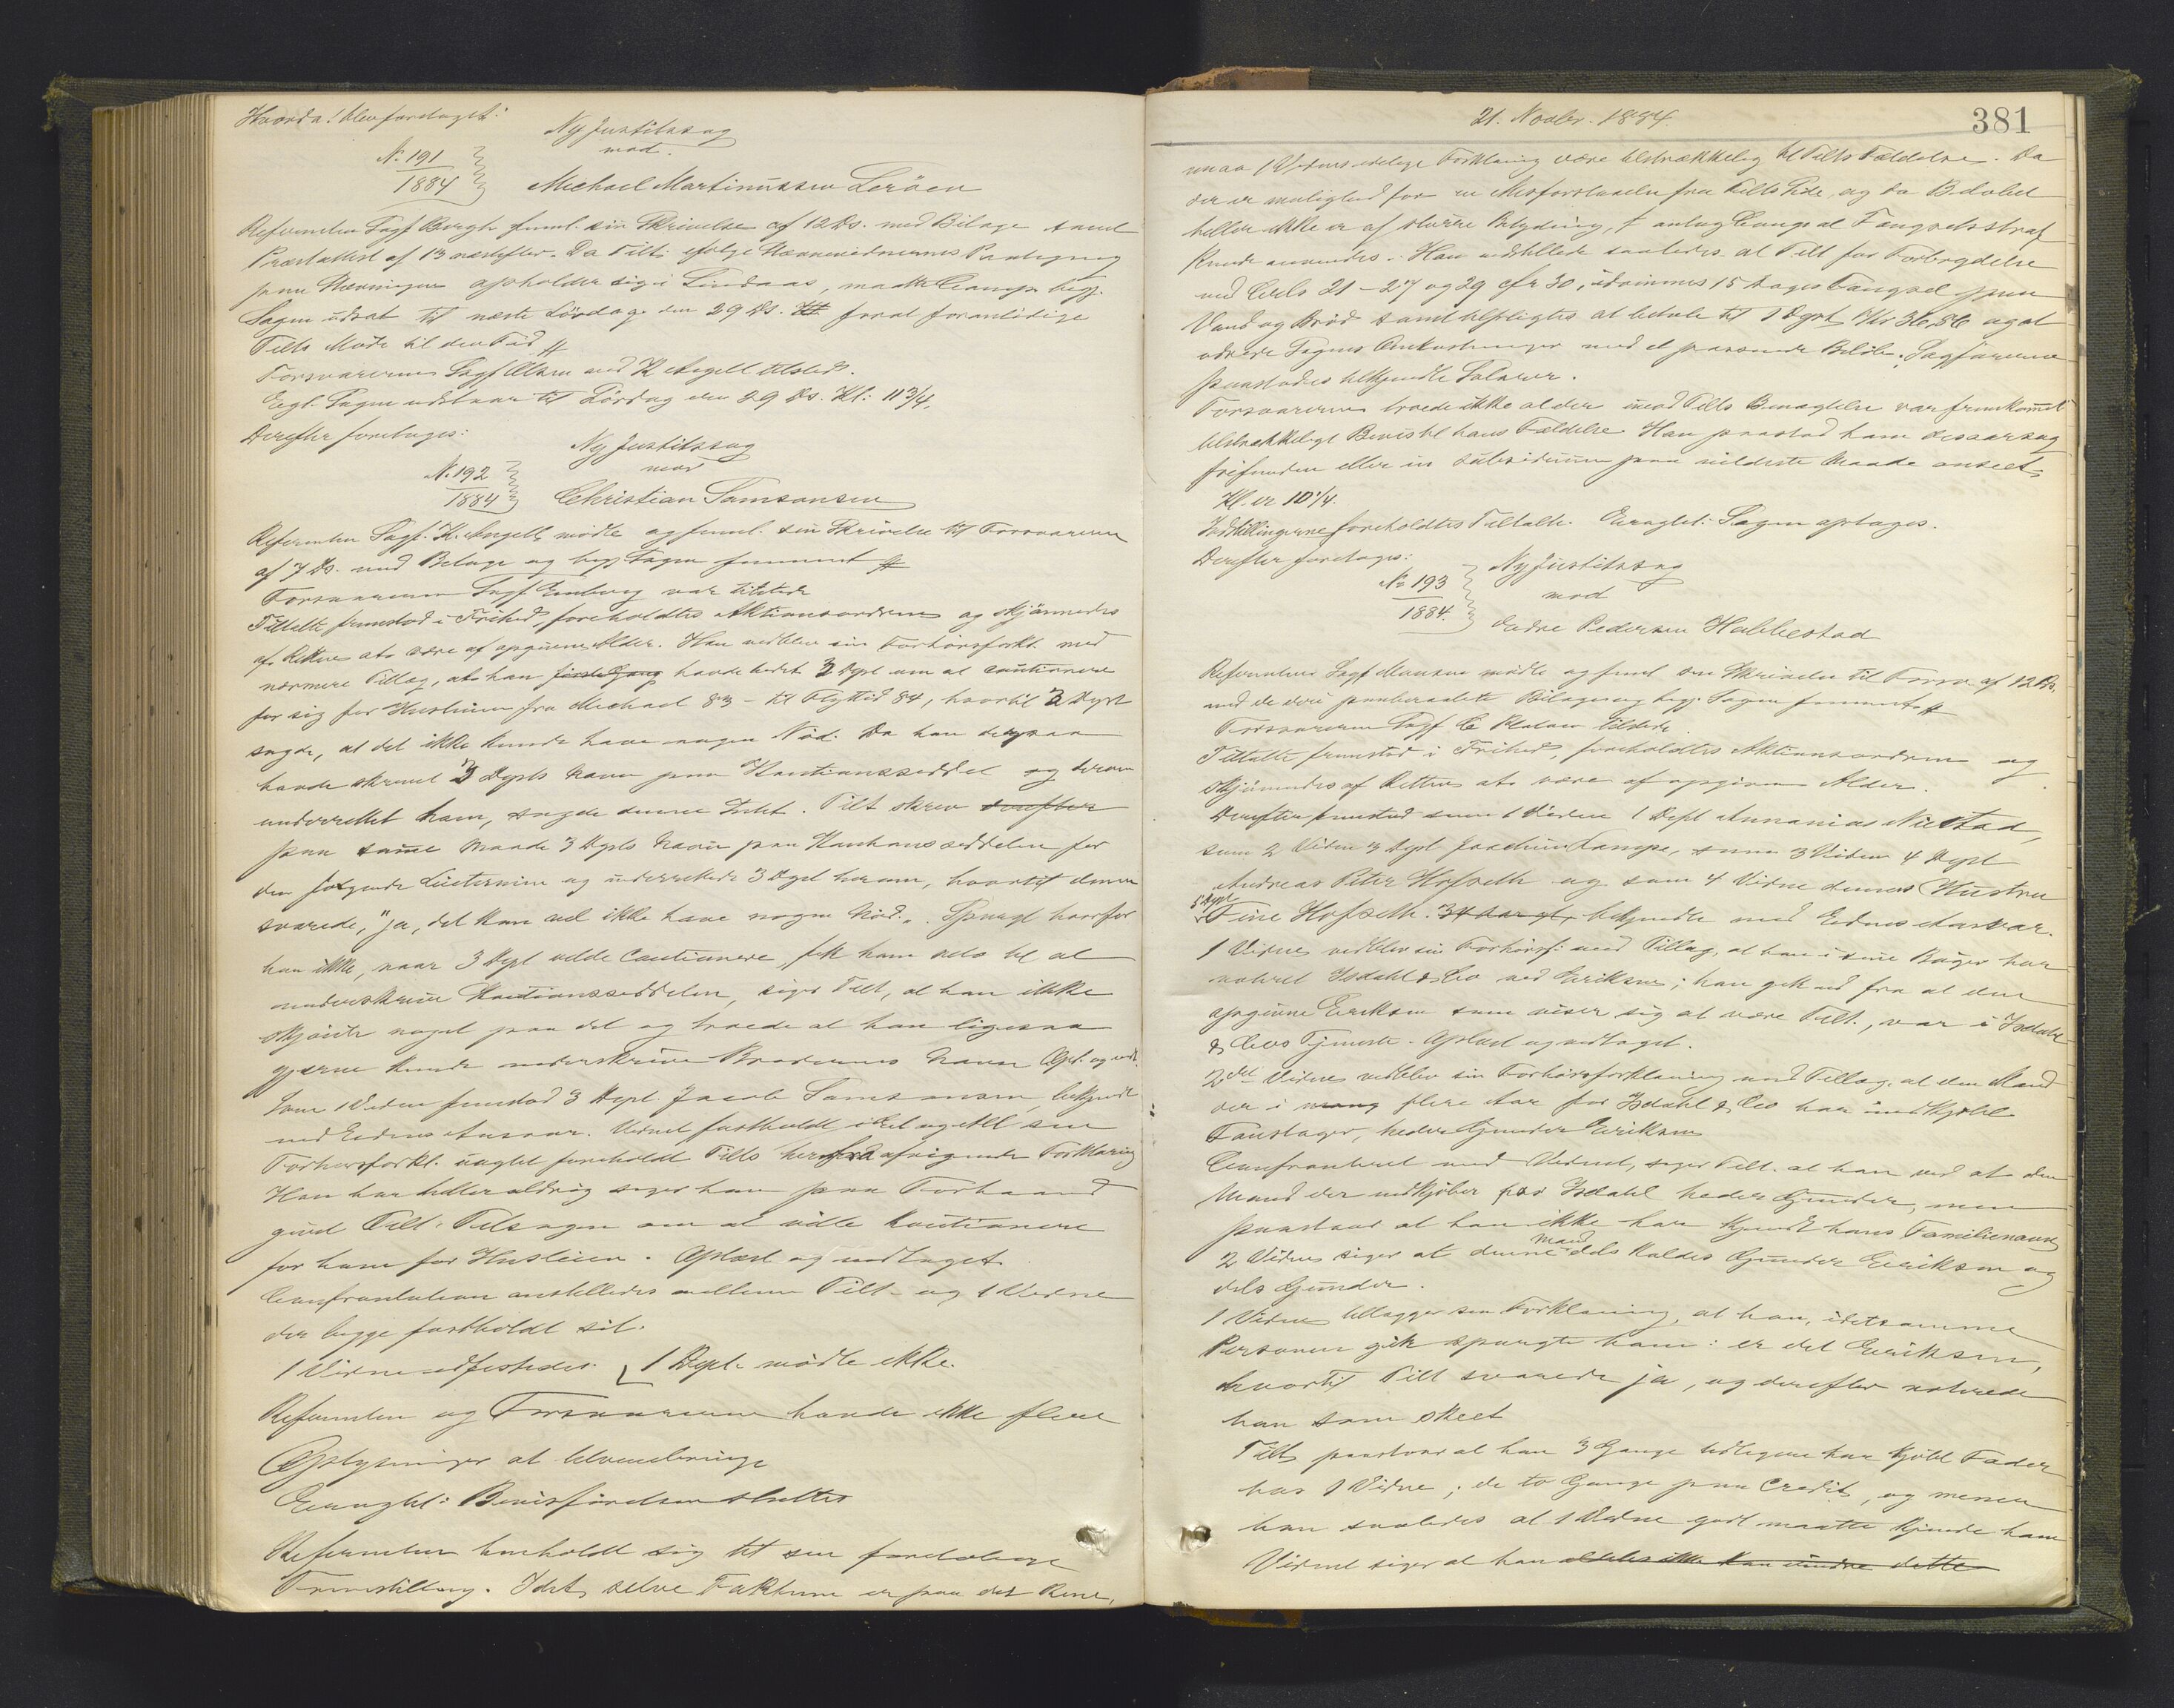 Hvorda! blev foretaget:
Ny Justitssag
mod
No. 191
1884
Michael Martinussen Leröen
Referenten Sagf Bergh freml. sin Skrivelse af 12 ds. med Bilage samt
Præstattest af 13 næstefter. Da Tilt. ifölge Stevnevidnernes Paategning
paa Stevningen opholder sig i Lindaas, maatte Comp. beg.
Sagen udsat til næste Lördag den 29 ds. for at foranledige
Tiltes Möde til den Tid
Forsvareren Sagf Olsen ved K Angell tilsted.
Eragt. Sagen udstaar til Lördag den 29 ds. Kl: 11 3/4.
Derefter foretages:
Ny Justitssag
mod
No. 192
1884
Christian Samsonsen
Referenten Sagf. K. Angell mödte og freml. sin Skrivelse til Forsvareren
af 7 ds. med Bilage og beg Sagen fremmet
Forsvareren Sagf. var tilstede
Tiltalte fremstod i Frihed, foreholdtes Aktionsordren og skjönnedes
af Retten at være af opgiven Alder. Han vedblev sin Forhörsforkl. med
nærmere Tillæg, at han første Gang havde bedet 3 Dept om at cautionere
for sig for Huslejen fra Michael 83 - til Flyttid 84, hvortil 3 Dept
sagde, at det ikke kunde have nogen Nöd. Da han derpaa
havde skrevet 3 Depts Navn paa Kautionsseddel og derom
underrettet ham, sagde denne Intet. Tilt skrev derefter
paa samme Maade 3 Depts Navn paa Kautionsseddelen for
den følgende Leietermin og underrettede 3 Dept herom, hvortil denne
svarede, "ja, det kan vel ikke have nogen Nöd". Spurgt hvorfor
han ikke, naar 3 Dept vilde Cautionere, fik ham selv til at
underskrive Kautionsseddelen, siger Tilt, at han ikke
skjötte noget paa det og troede at han ligesaa
gjerne kunde underskrive Broderens Navn Opl. og vedt.
Som 1 Vidne fremstod 3 Dept. Jacob Samsonsen, bekjendt
med Eedens Ansvar. Vidnet fastholdt i Et og Alt sin
Forhørsforkl. uagtet foreholdt Tiltes herfra afvigende Forklaring
Han har heller aldrig siger han paa Forhaand
givet Tilt. Tilsagn om at ville Kautionere
for ham for Husleien. Oplæst og vedtaget
Confrontation anstilledes mellem Tilt. og 1 Vidne
der begge fastholdt sit.
1 Vidne edfestedes. 1 Dept. mödte ikke.
Referenten og Forsvareren havde ikke flere
Oplysninger at tilveiebringe
Eragtet: Bevisförelsen sluttes
Referenten henholdt sig til sin foreløbige
Fremstilling. Idet selve Faktum er paa det Rene,
21. Novbr. 1884.
381
maa 1 Vidnes edelige Forklaring være tilstrækkelig til Tiltes Fældelse. Da
der er mulighed for en Misforstaaelse fra Tiltes Side, og da Beløbet
heller ikke er af större Betydning, antog Comp. at Fængselsstraf
kunde anvendes. Han indstillede saaledes at Tilt for Forbrydelse
ved Crls 21 - 27 og 29 cfr 30, idömmes 15 Dages Fængsel paa
Vand og Bröd samt tilpligtes at betale til 1 Dept Kr 36,56 og at
udrede Sagens Omkostninger med et passende Belöb. Sagförerne
paastodes tilkjendte Salærer.
Forsvareren troede ikke at der imod Tiltes Benægtelse var fremkommet
tilstrækkeligt Bevis til hans Fældelse. Han paastod ham desaarsag
frifunden eller in subsidium paa mildeste Maade anseet.
Kl. er 10 1/4.
Indstillingerne foreholdtes Tiltalte. Eragtet: Sagen optages.
Derefter foretages:
Ny Justitssag
mod
No 193
1884.
Endre Pedersen Hablestad
Referenten Sagf Monsen mödte og freml sin Skrivelse til Forsv. af 12 ds.
med de deri paaberaabte Bilage og beg. Sagen fremmet
Forsvareren Sagf C tilstede.
Tiltalte fremstod i Frihed, foreholdtes Aktionsordren og
skjönnedes af Retten at være af opgiven Alder.
Derefter fremstod som 1 Vidne 1 Dept Annanias Nilstad,
som 2 Vidne 3 Dept Joachim Lampe, som 3 Vidne 4 Dept
Andreas Peter Hofseth og som 4 Vidne dennes Hustru
5 Dept
Tine Hofseth. 34 Aar gl, bekjendte med Eedens Ansvar.
1 Vidne vedblev sin Forhörsf. med Tillæg, at han i sine Böger har
noteret Isdahl & Co ved Eriksen; han gik ud fra at den
opgivne Eriksen som viser sig at være Tilt., var i Isdahl
& Cos Tjeneste. Oplæst og vedtaget.
2det Vidne vedblev sin Forhörsforklaring med Tillæg, at den Mand
der i mang flere Aar for Isdahl & Co har indkjöbt
Toustager, heder Gunder Eriksen
Confronteret med Vidnet, siger Tilt. at han ved at den
Mand der indkjöber for Isdahl heder Gunder, men
paastaar at han ikke har kjendt hans Familienavn
2 Vidne siger at denne Mand dels kaldes Gunder Eriksen og
dels Gunder.
1 Vidne tillægger sin Forklaring, at han, idetsamme
Personen gik spurgte ham: er det Eriksen,
hvortil Tilt svarede ja, og derefter noterede
han som skeet
Tilt. paastaar at han 3 Gange tidligere har kjöbt Fader
hos 1 Vidne; de to Gange paa Credit, og mener
han saaledes at 1 Vidne godt maatte kjende ham
Vidnet siger at han aldeles ikke kan erindre dette